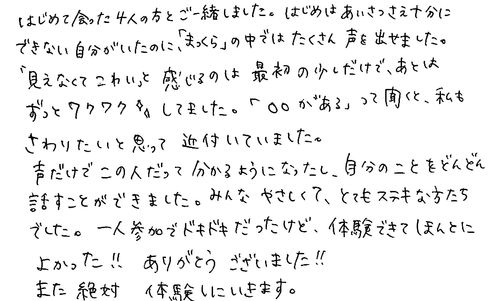 はじめて会った4人の方とご一緒しました。はじめはあいさつさえ十分に
できない自分がいたのに、「まっくら」の中ではたくさん声を出せました。
「見えなくてこわい」と感じるのは最初の少しだけで、あとは
ずっとワクワクしてました。「○○がある」って聞くと、私も
さわりたいと思って近付いていました。
声だけでこの人だって分かるようになったし、自分のことをどんどん
話すことができました。みんなやさしくて、とてもステキな方たち
でした。一人参加でドキドキだったけど、体験できてほんとに
よかった!! ありがとうございました!!
また絶対 体験しにいきます。